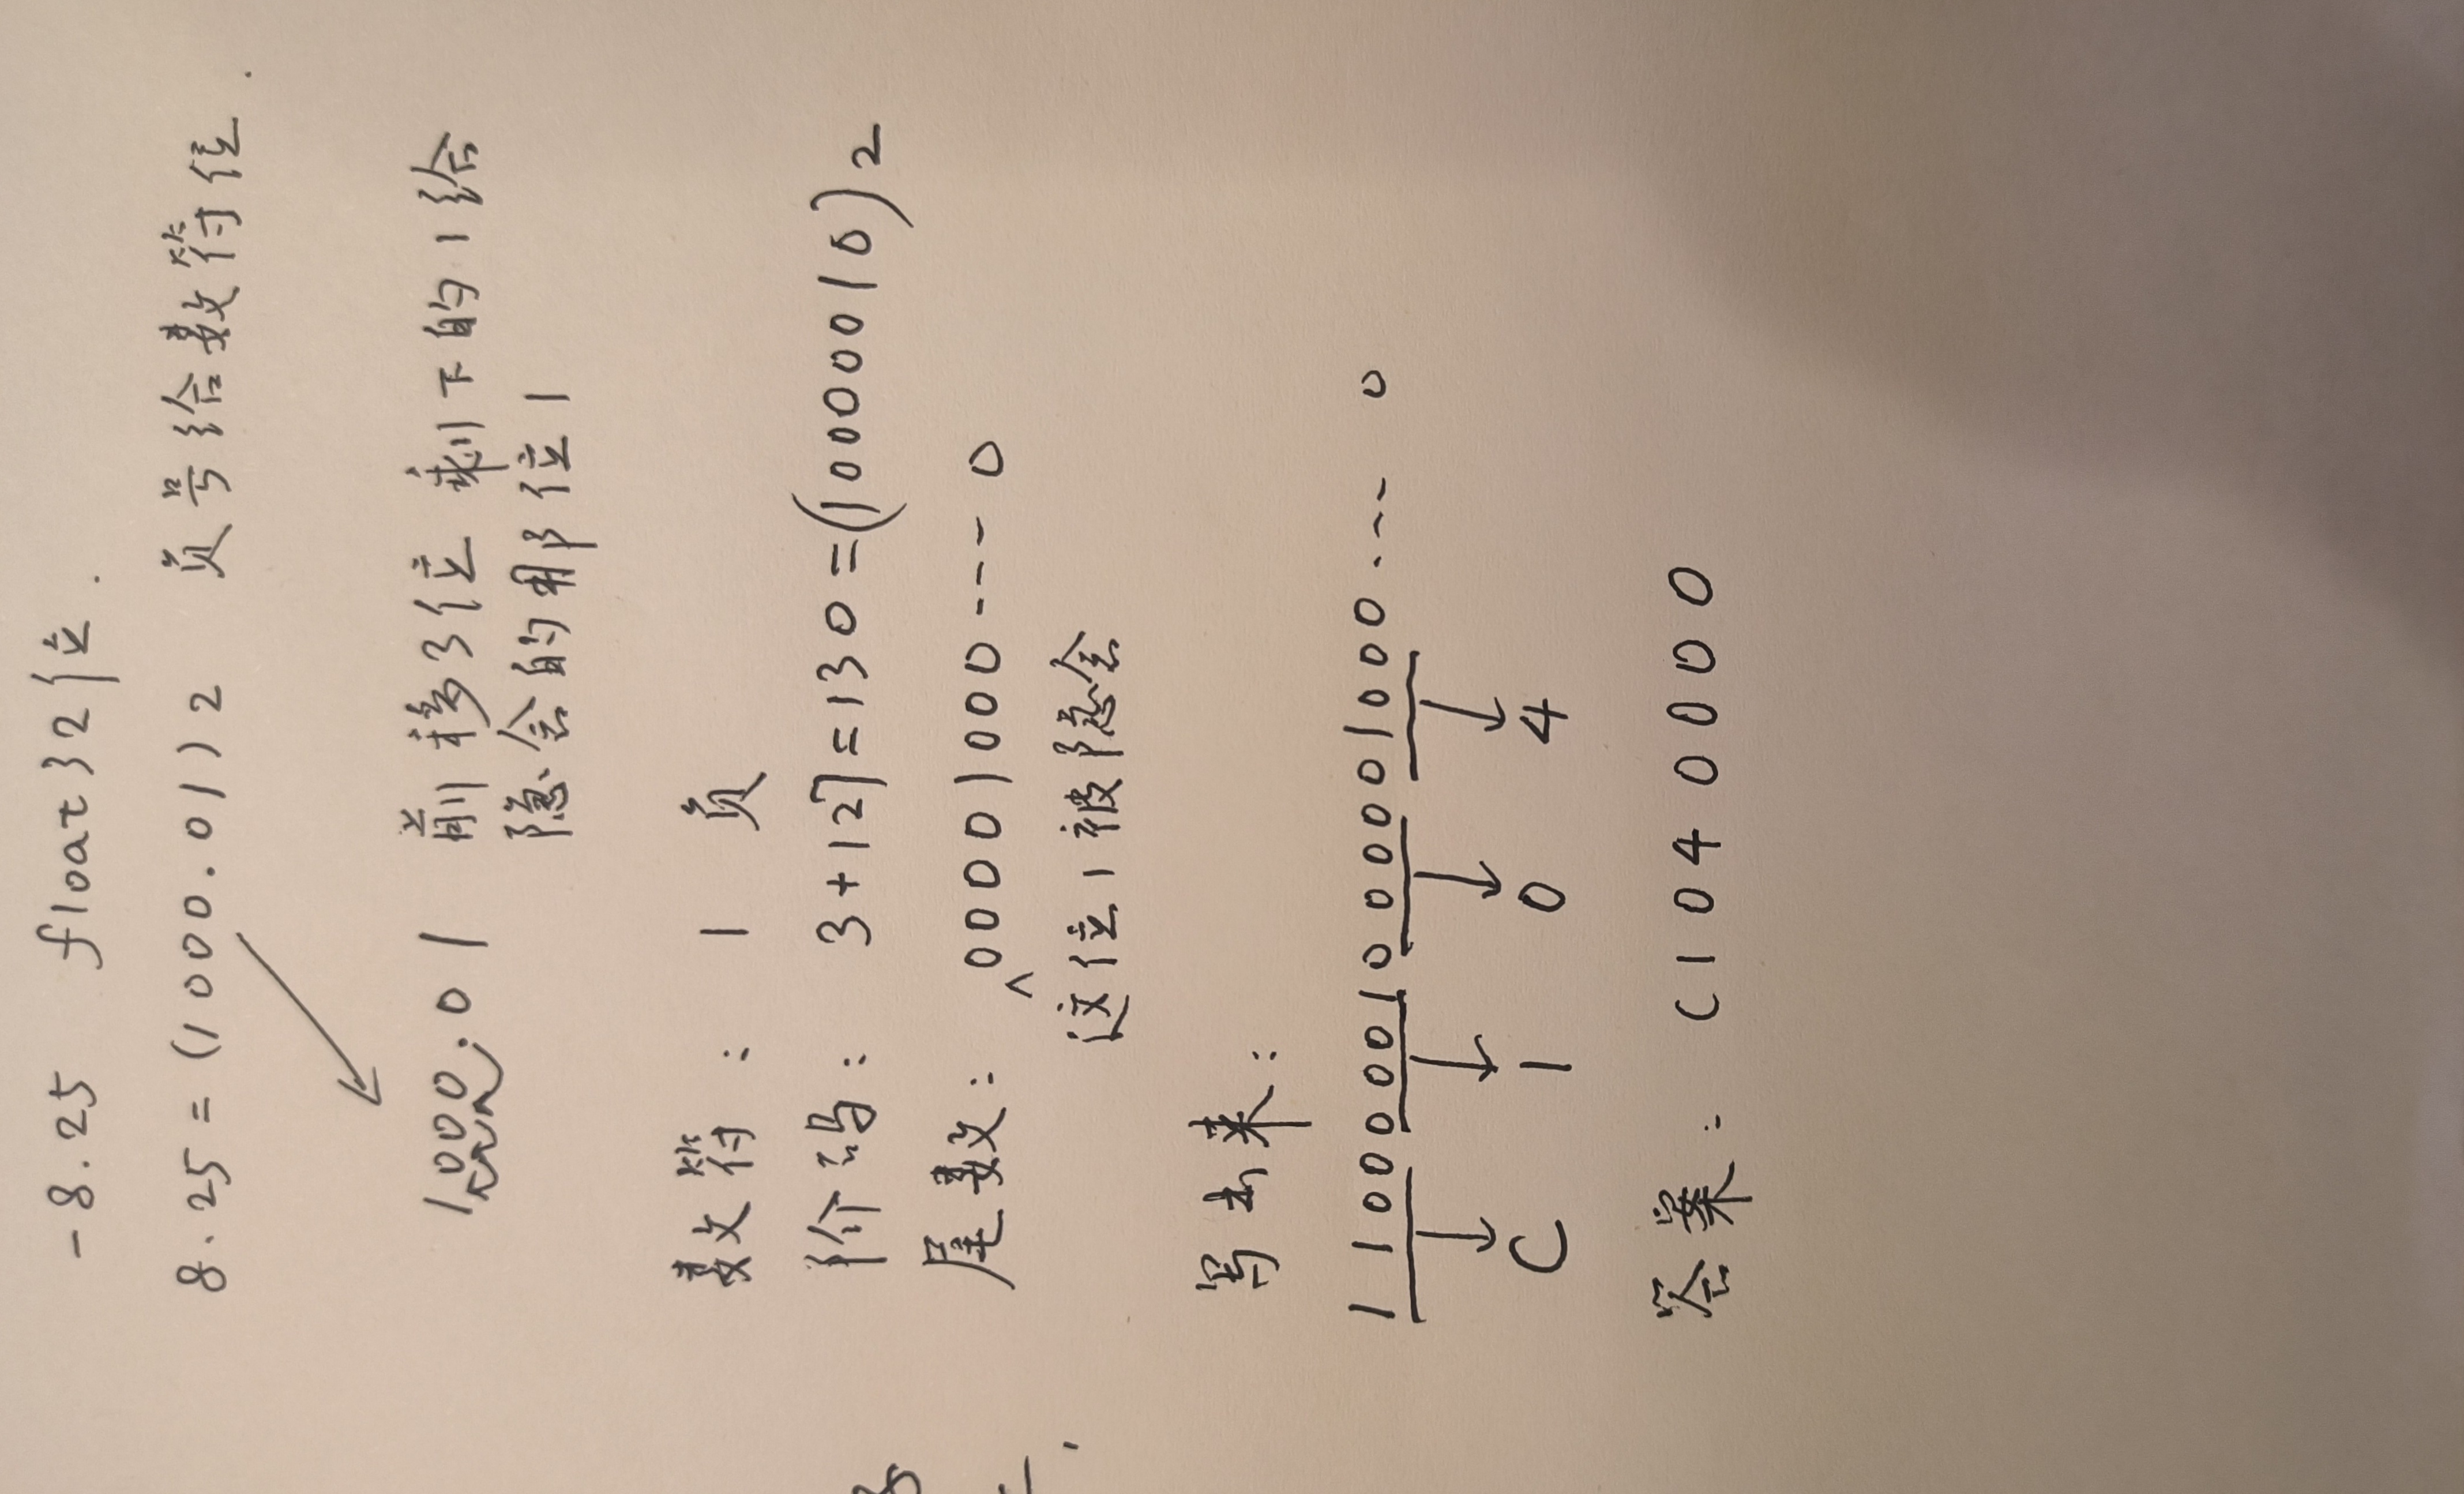 -8.25 float32位.
8.25=(1000.01)2 负号给数符位.
1000.01 前移3位 剩下的1给
隐含的那位1
数符: 1 负
阶码: 3+127=130=(10000010)2
尾数: 00001000---- 0
^
这位1被隐含
写出来:
11000001000001000... 0
C 1 0 4
答案: C1040000